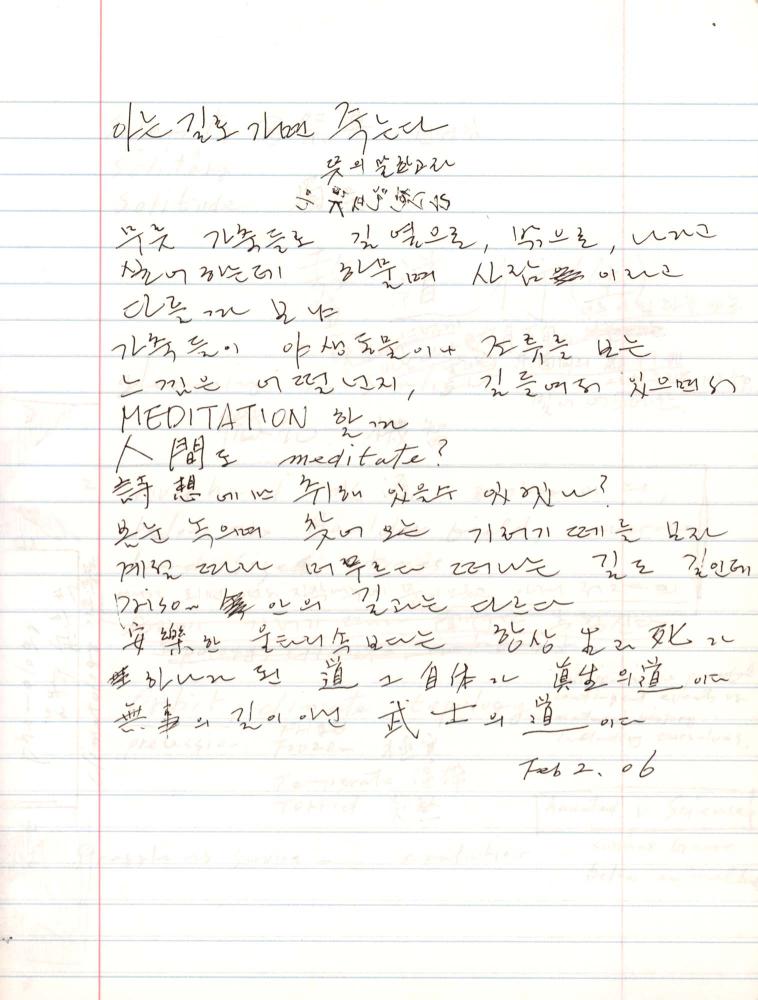 아는 길로 가면 죽는다
무릇 가축들도 길 옆으로, 밖으로, 나라고
싫어 하는데 하물며 사람 이라고
다를 가 보냐
가축들이 야생동물이나 조류를 보는
느낌은 어떨넌지, 길들여져 있으면서
MEDITATION 할가
人間도 meditate?
詩想에나 취해 있을수 있겠나?
봄눈 녹으며 찾어 오는 기러기 떼를 보자
계절 따라 머무르다 떠나는 길도 길인데
Prison 안의 길과는 다르다
安樂한 울타리속 보다는 항상 生과 死가
하나가 된 道 그 自体가 眞生의 道 이다
無事의 길이 아닌 武士의 道 이다
Feb 2. 06